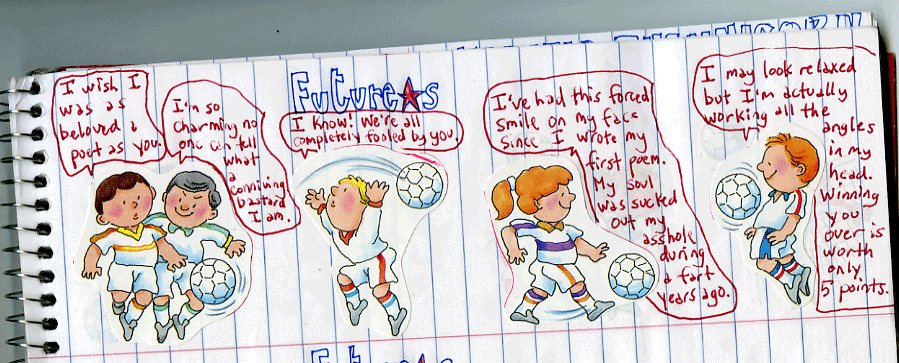 Future★s
I wish I
was as
beloved a
poet as you.
I'm so
charming no
one can tell
what
a
conniving
bastard
I am.
I know! We're all
completely fooled by you.
I've had this forced
smile on my face
since I wrote my
first poem.
My soul
was sucked
out my
asshole
during
a fart
years ago.
I may look relaxed
but I'm actually
working all the
angles
in my
head.
Winning
you
over is
worth
only
5 points.
Future★s